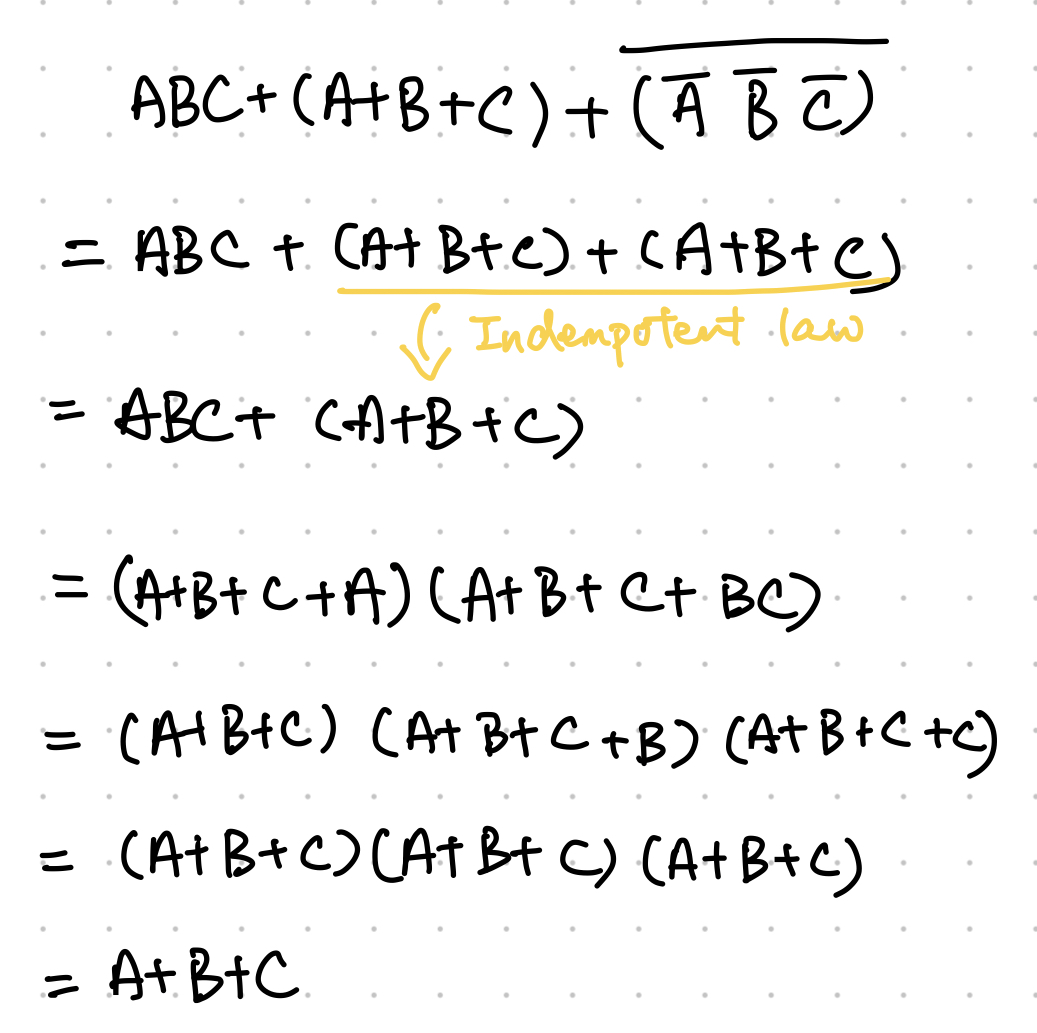 ABC+(A+B+C)+\overline{(\overline{A} \overline{B} \overline{C})}
= ABC + (A+B+C) + (A+B+C)
Indempotent law
= ABC + (A+B+C)
= (A+B+C+A)(A+B+C+BC)
= (A+B+C) (A+B+C+B) (A+B+C+C)
= (A+B+C)(A+B+C) (A+B+C)
= A+B+C